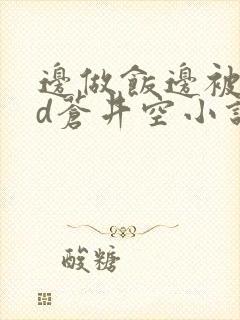 邊做飯邊被
d蒼井空小說
酸糖